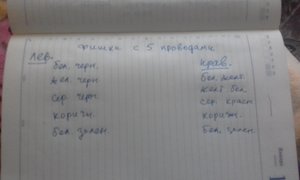 Фишки с 5 проводами
лев. прав.
бел. черн. бел. желт.
жел. черн желт бел.
сер. черн. сер. красн
коричн. коричн.
бел. зелен. бел. зелен.